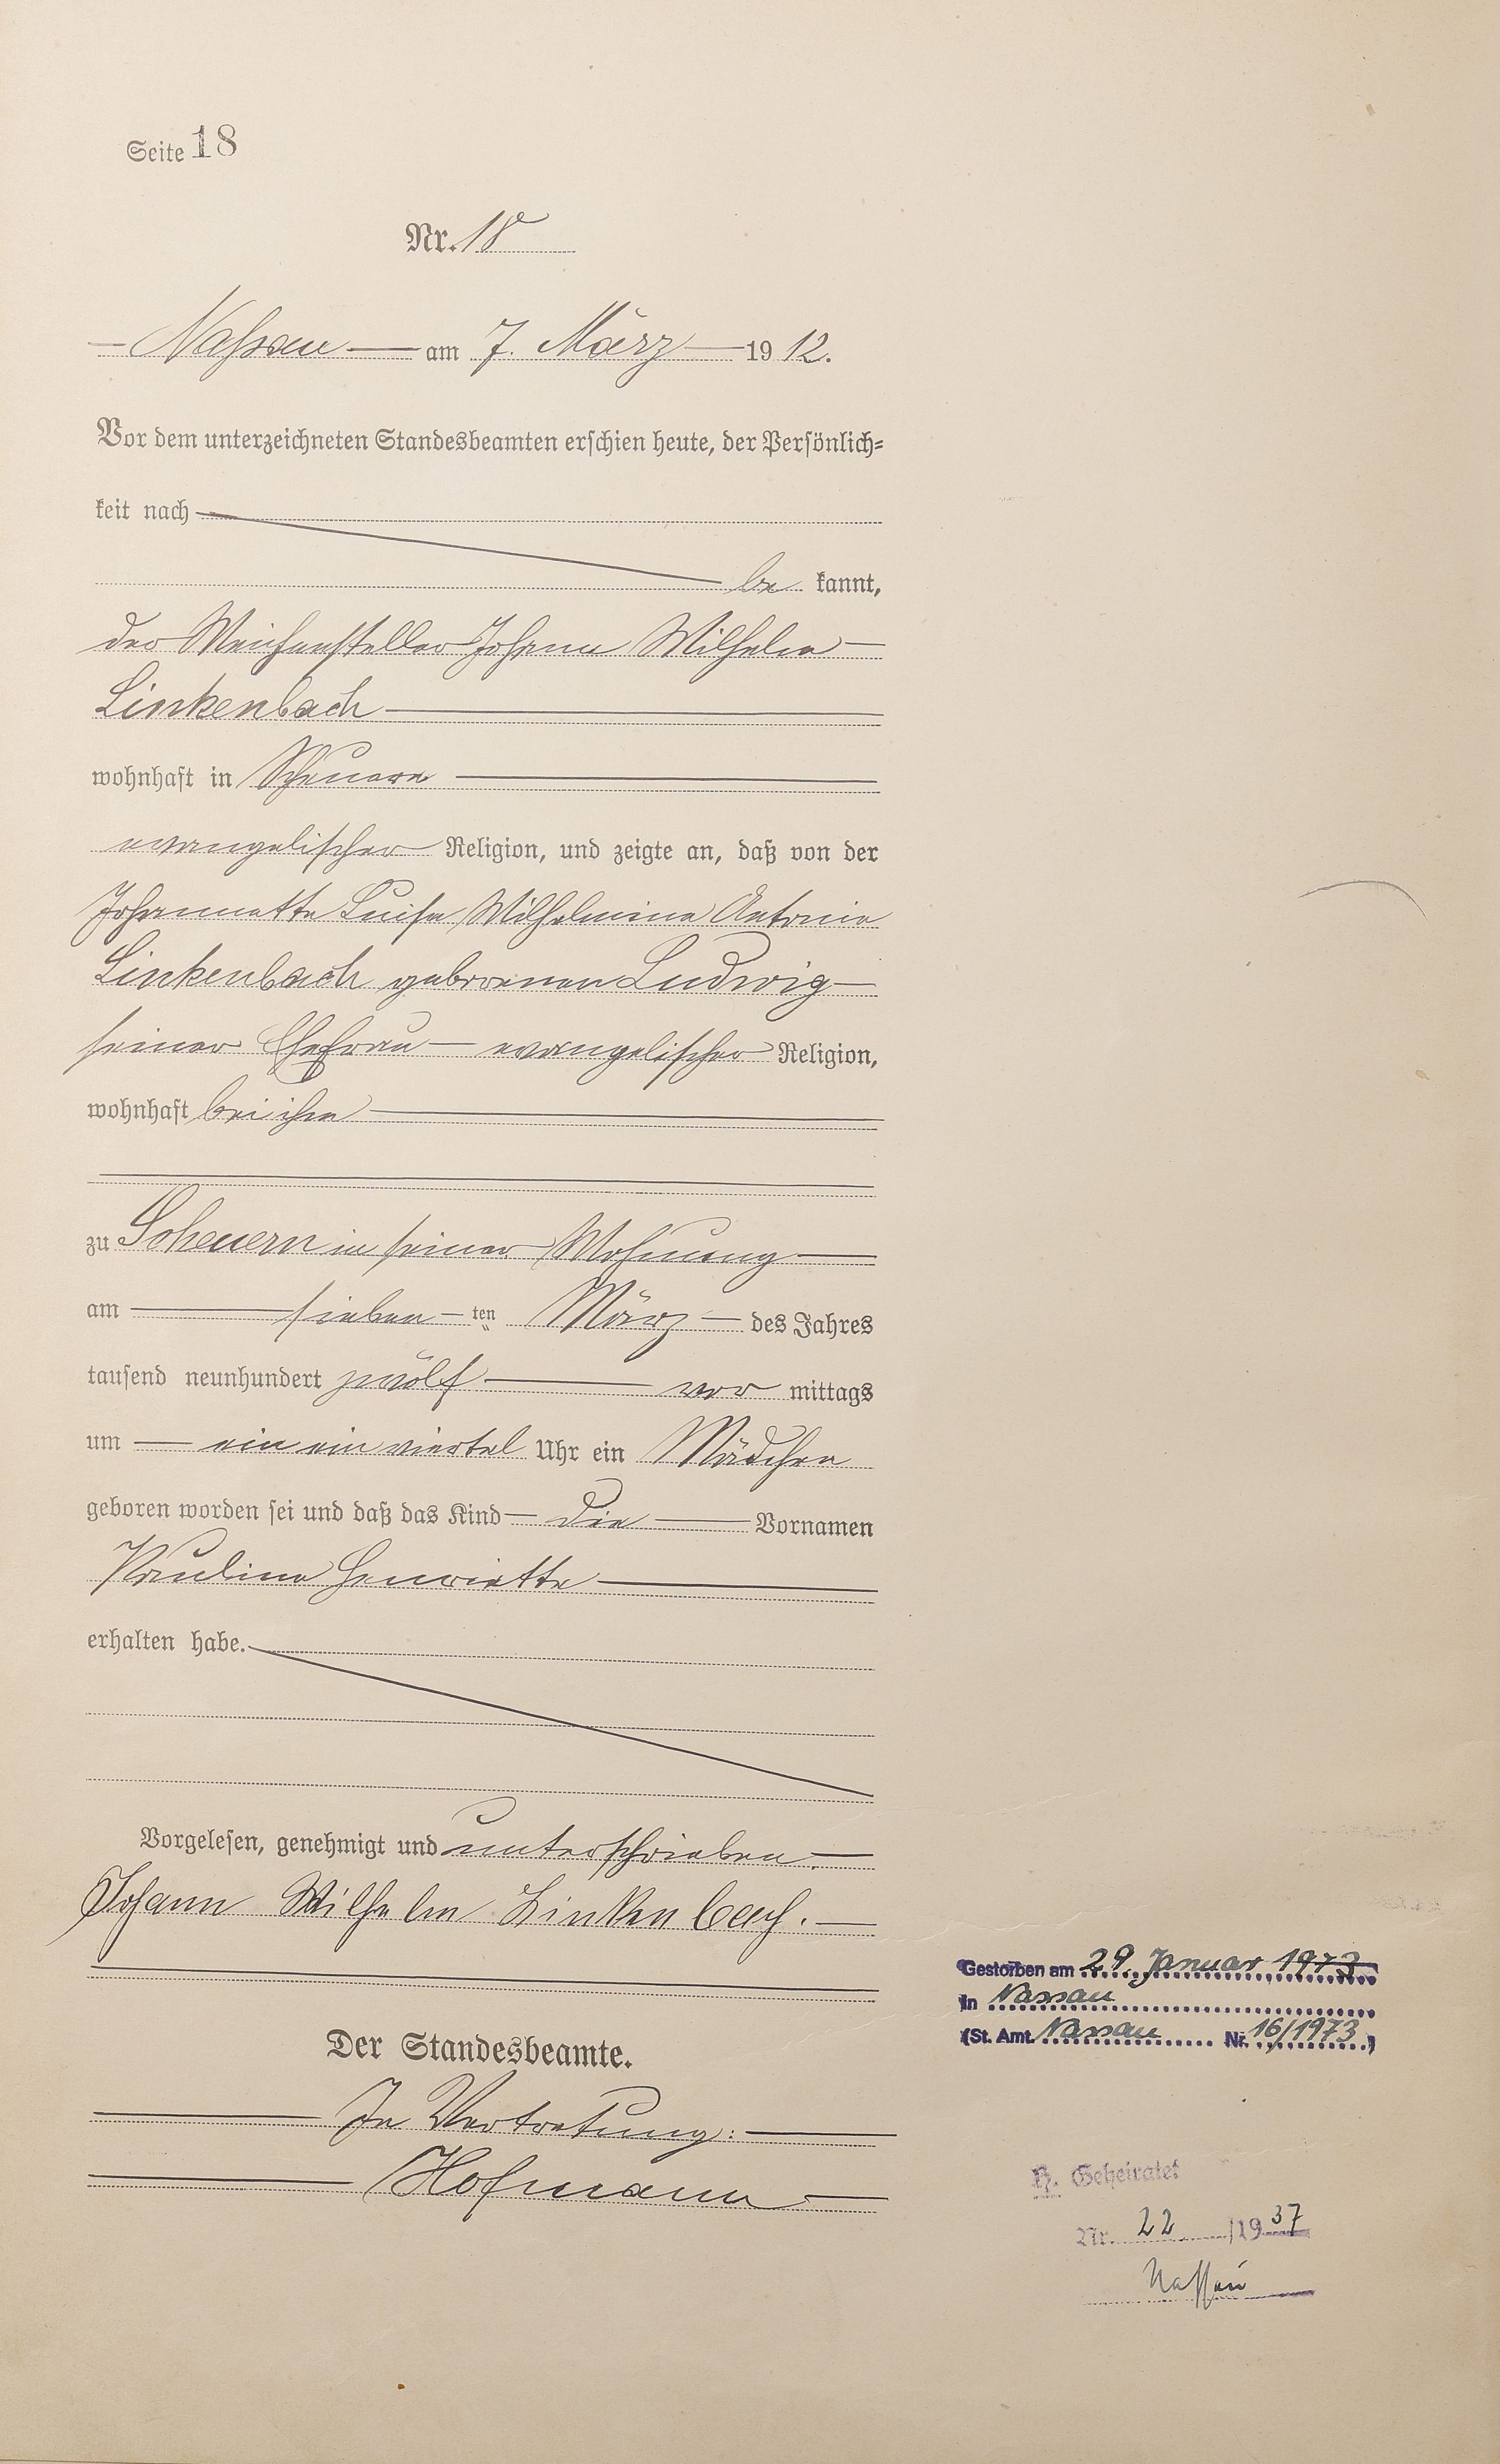 Seite 18
Nr. 18
Nassau am 7. März 1912.
Vor dem unterzeichneten Standesbeamten erschien heute, der Persönlich=
keit nach
be kannt,
der Weichensteller Johann Wilhelm
Linkenbach
wohnhaft in Scheuern
evangelischer Religion, und zeigte an, daß von der
Johannette Luise Wilhelmine Antonie
Linkenbach geborenen Ludwig
seiner Ehefrau evangelischer Religion,
wohnhaft bei ihm
zu Scheuern in seiner Wohnung
am sieben ten März des Jahres
tausend neunhundert zwölf vor mittags
um ein ein viertel Uhr ein Mädchen
geboren worden sei und daß das Kind die Vornamen
Pauline Henriette
erhalten habe.
Vorgelesen, genehmigt und unterschrieben.
Johann Wilhelm Linkenbach.
Der Standesbeamte.
In Vertretung:
Hofmann
Gestorben am 29. Januar 1973
in Nassau
(St. Amt. Nassau Nr. 16/1973)
Geheiratet
Nr. 22 /1937
Nassau